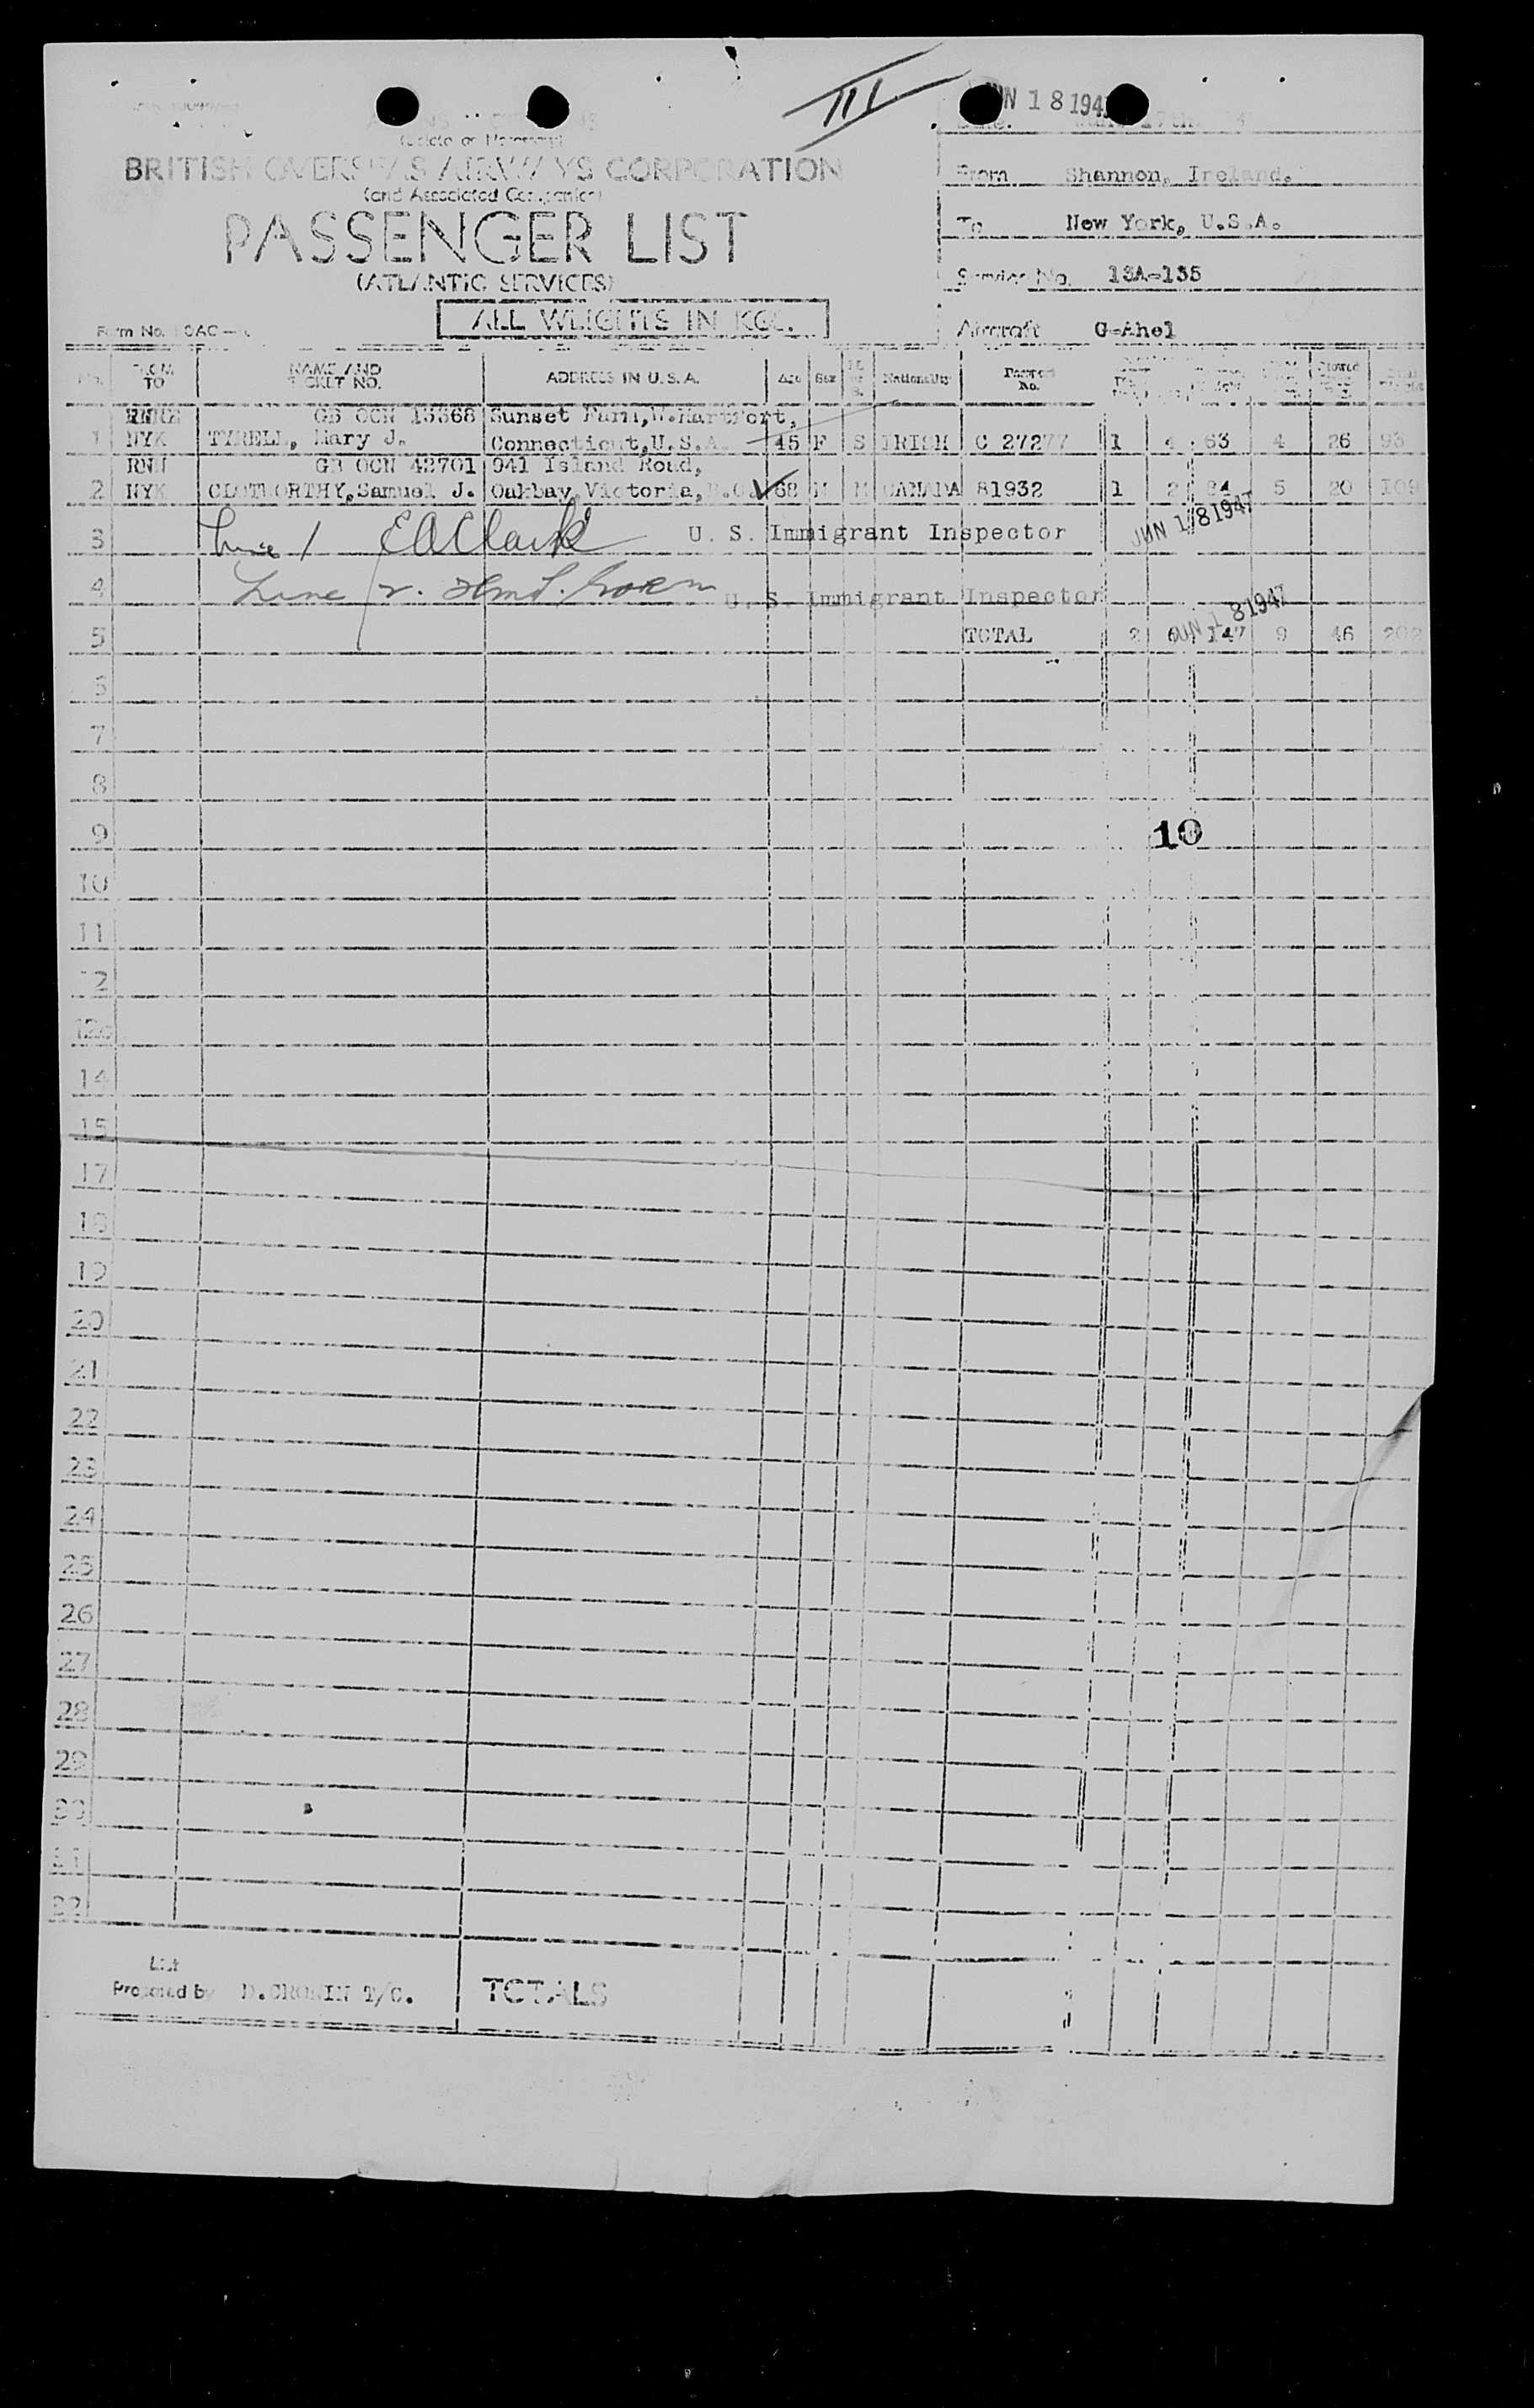 III
JUN 18 194
Date. 17th
BRITISH OVERSEAS AIRWAYS CORPORATION
(and Associated Companies)
PASSENGER LIST
(ATLANTIC SERVICES)
ALL WEIGHTS IN KGS.
Form No.
From Shannon, Ireland.
To New York, U.S.A.
Service No. 13A-135
Aircraft G-Ahel
No. FROM TO NAME AND TICKET NO. ADDRESS IN U.S.A. Age Sex Nationality Passport No. Stowed
GB OCN 13368 Sunset Farm, W.Hartfort,
1 NYK TYRELL, Mary J. Connecticut,U.S.A. 45 F S IRISH C 27277 1 4 63 4 26 93
RNN GB OCN 42701 941 Island Road,
2 NYK CLOTWORTHY,Samuel J. Oakbay,Victoria,B.C. 68 M M CANADA 81932 1 2 84 5 20 109
3 Line 1 EAClark U. S. Immigrant Inspector JUN 18 1947
4 Line 2. U. S. Immigrant Inspector JUN 18 1947
5 TOTAL 2 6 147 9 46 202
6
7
8
9 10
10
11
12
12a
14
15
17
18
19
20
21
22
23
24
25
26
27
28
29
30
31
32
List
Prepared by D.CRONIN T/C. TOTALS